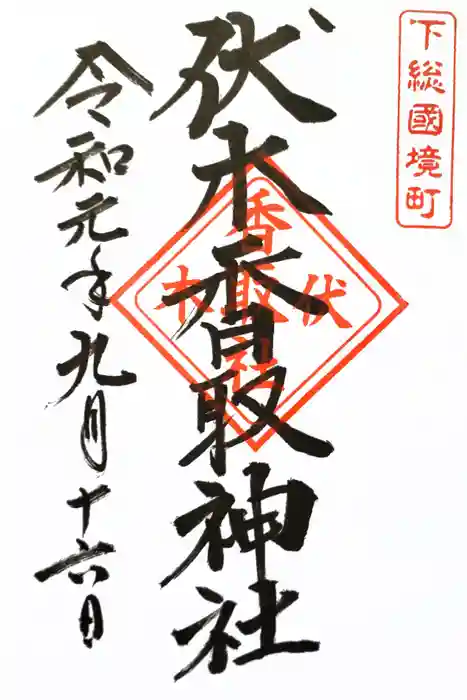 下総國境町
伏木香取神社
香取社
伏木
令和元年九月十六日